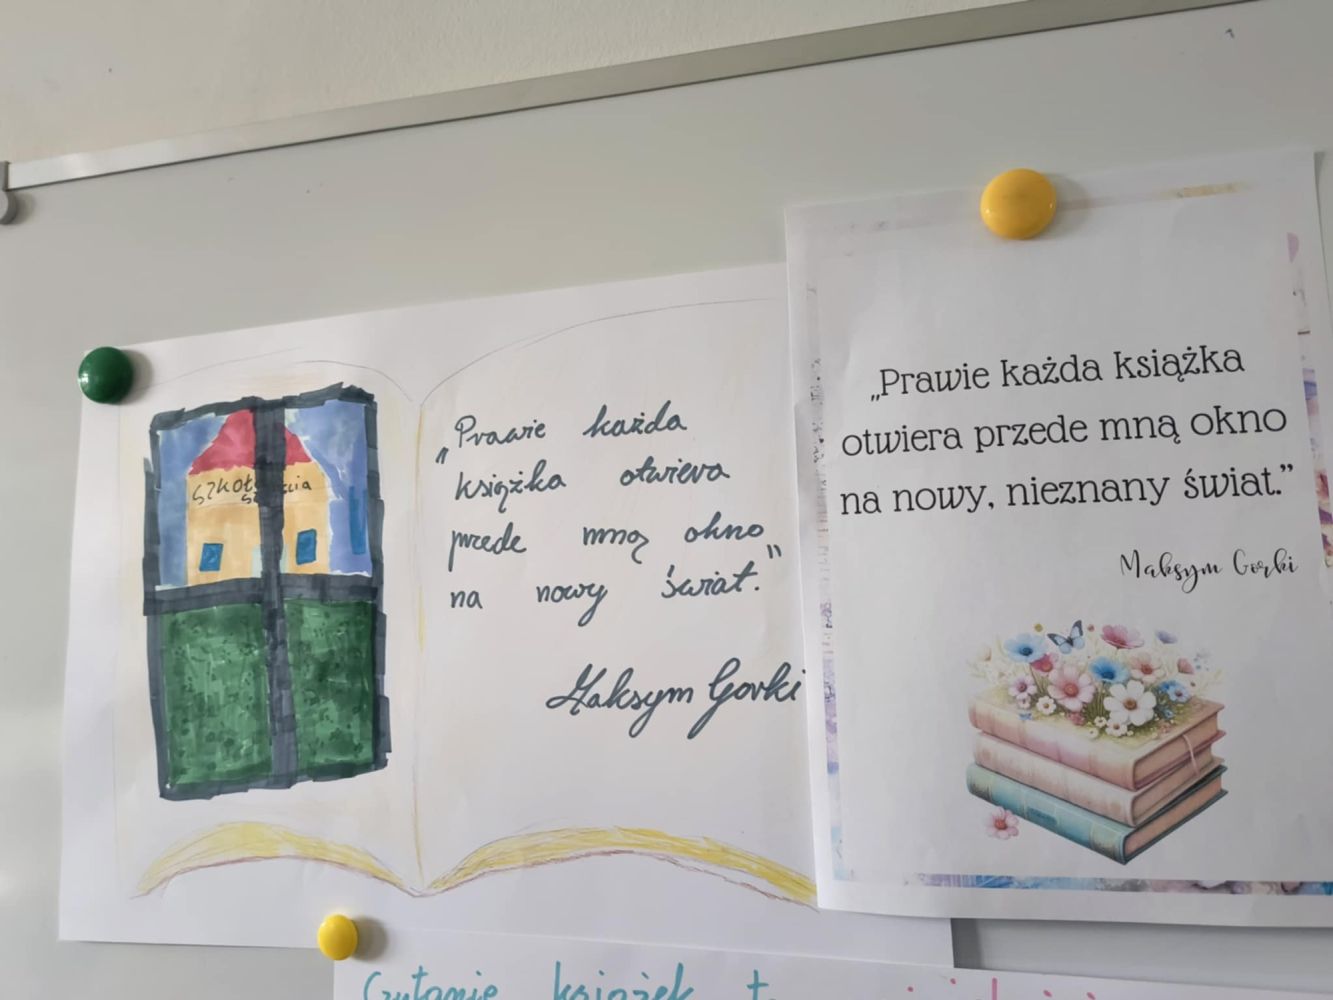 „Prawie każda
książka otwiera
przede mną okno
na nowy świat."
Maksym Gorki
„Prawie każda książka
otwiera przede mną okno
na nowy, nieznany świat.”
Maksym Gorki
Czytanie książek